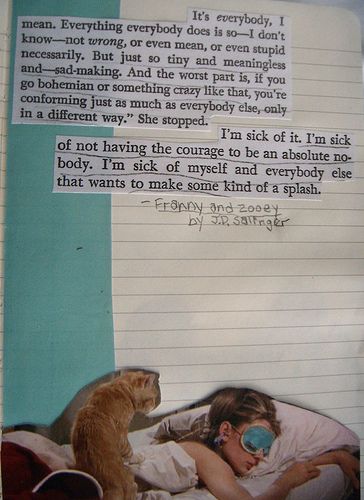 It's everybody, I
mean. Everything everybody does is so—I don't
know—not wrong, or even mean, or even stupid
necessarily. But just so tiny and meaningless
and—sad-making. And the worst part is, if you
go bohemian or something crazy like that, you're
conforming just as much as everybody else, only
in a different way." She stopped.
I'm sick of it. I'm sick
of not having the courage to be an absolute no-
body. I'm sick of myself and everybody else
that wants to make some kind of a splash.
- Franny and Zooey
by J.D. Salinger